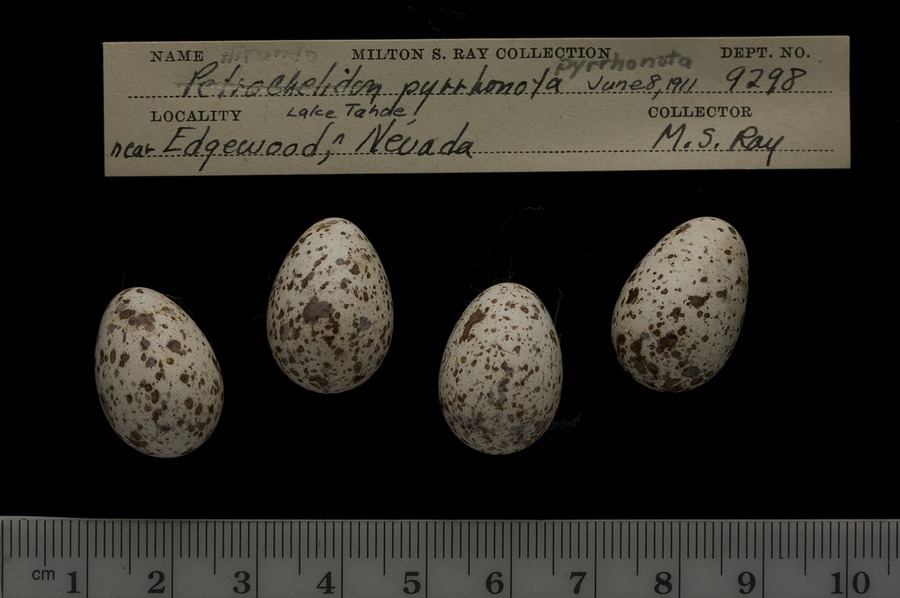 NAME Hirundo MILTON S. RAY COLLECTION pyrrhonota DEPT. NO.
Petrochelidon pyrrhonota June 8, 1911 9298
LOCALITY Lake Tahoe, COLLECTOR
near Edgewood, ^ Nevada M. S. Ray
cm 1 2 3 4 5 6 7 8 9 10